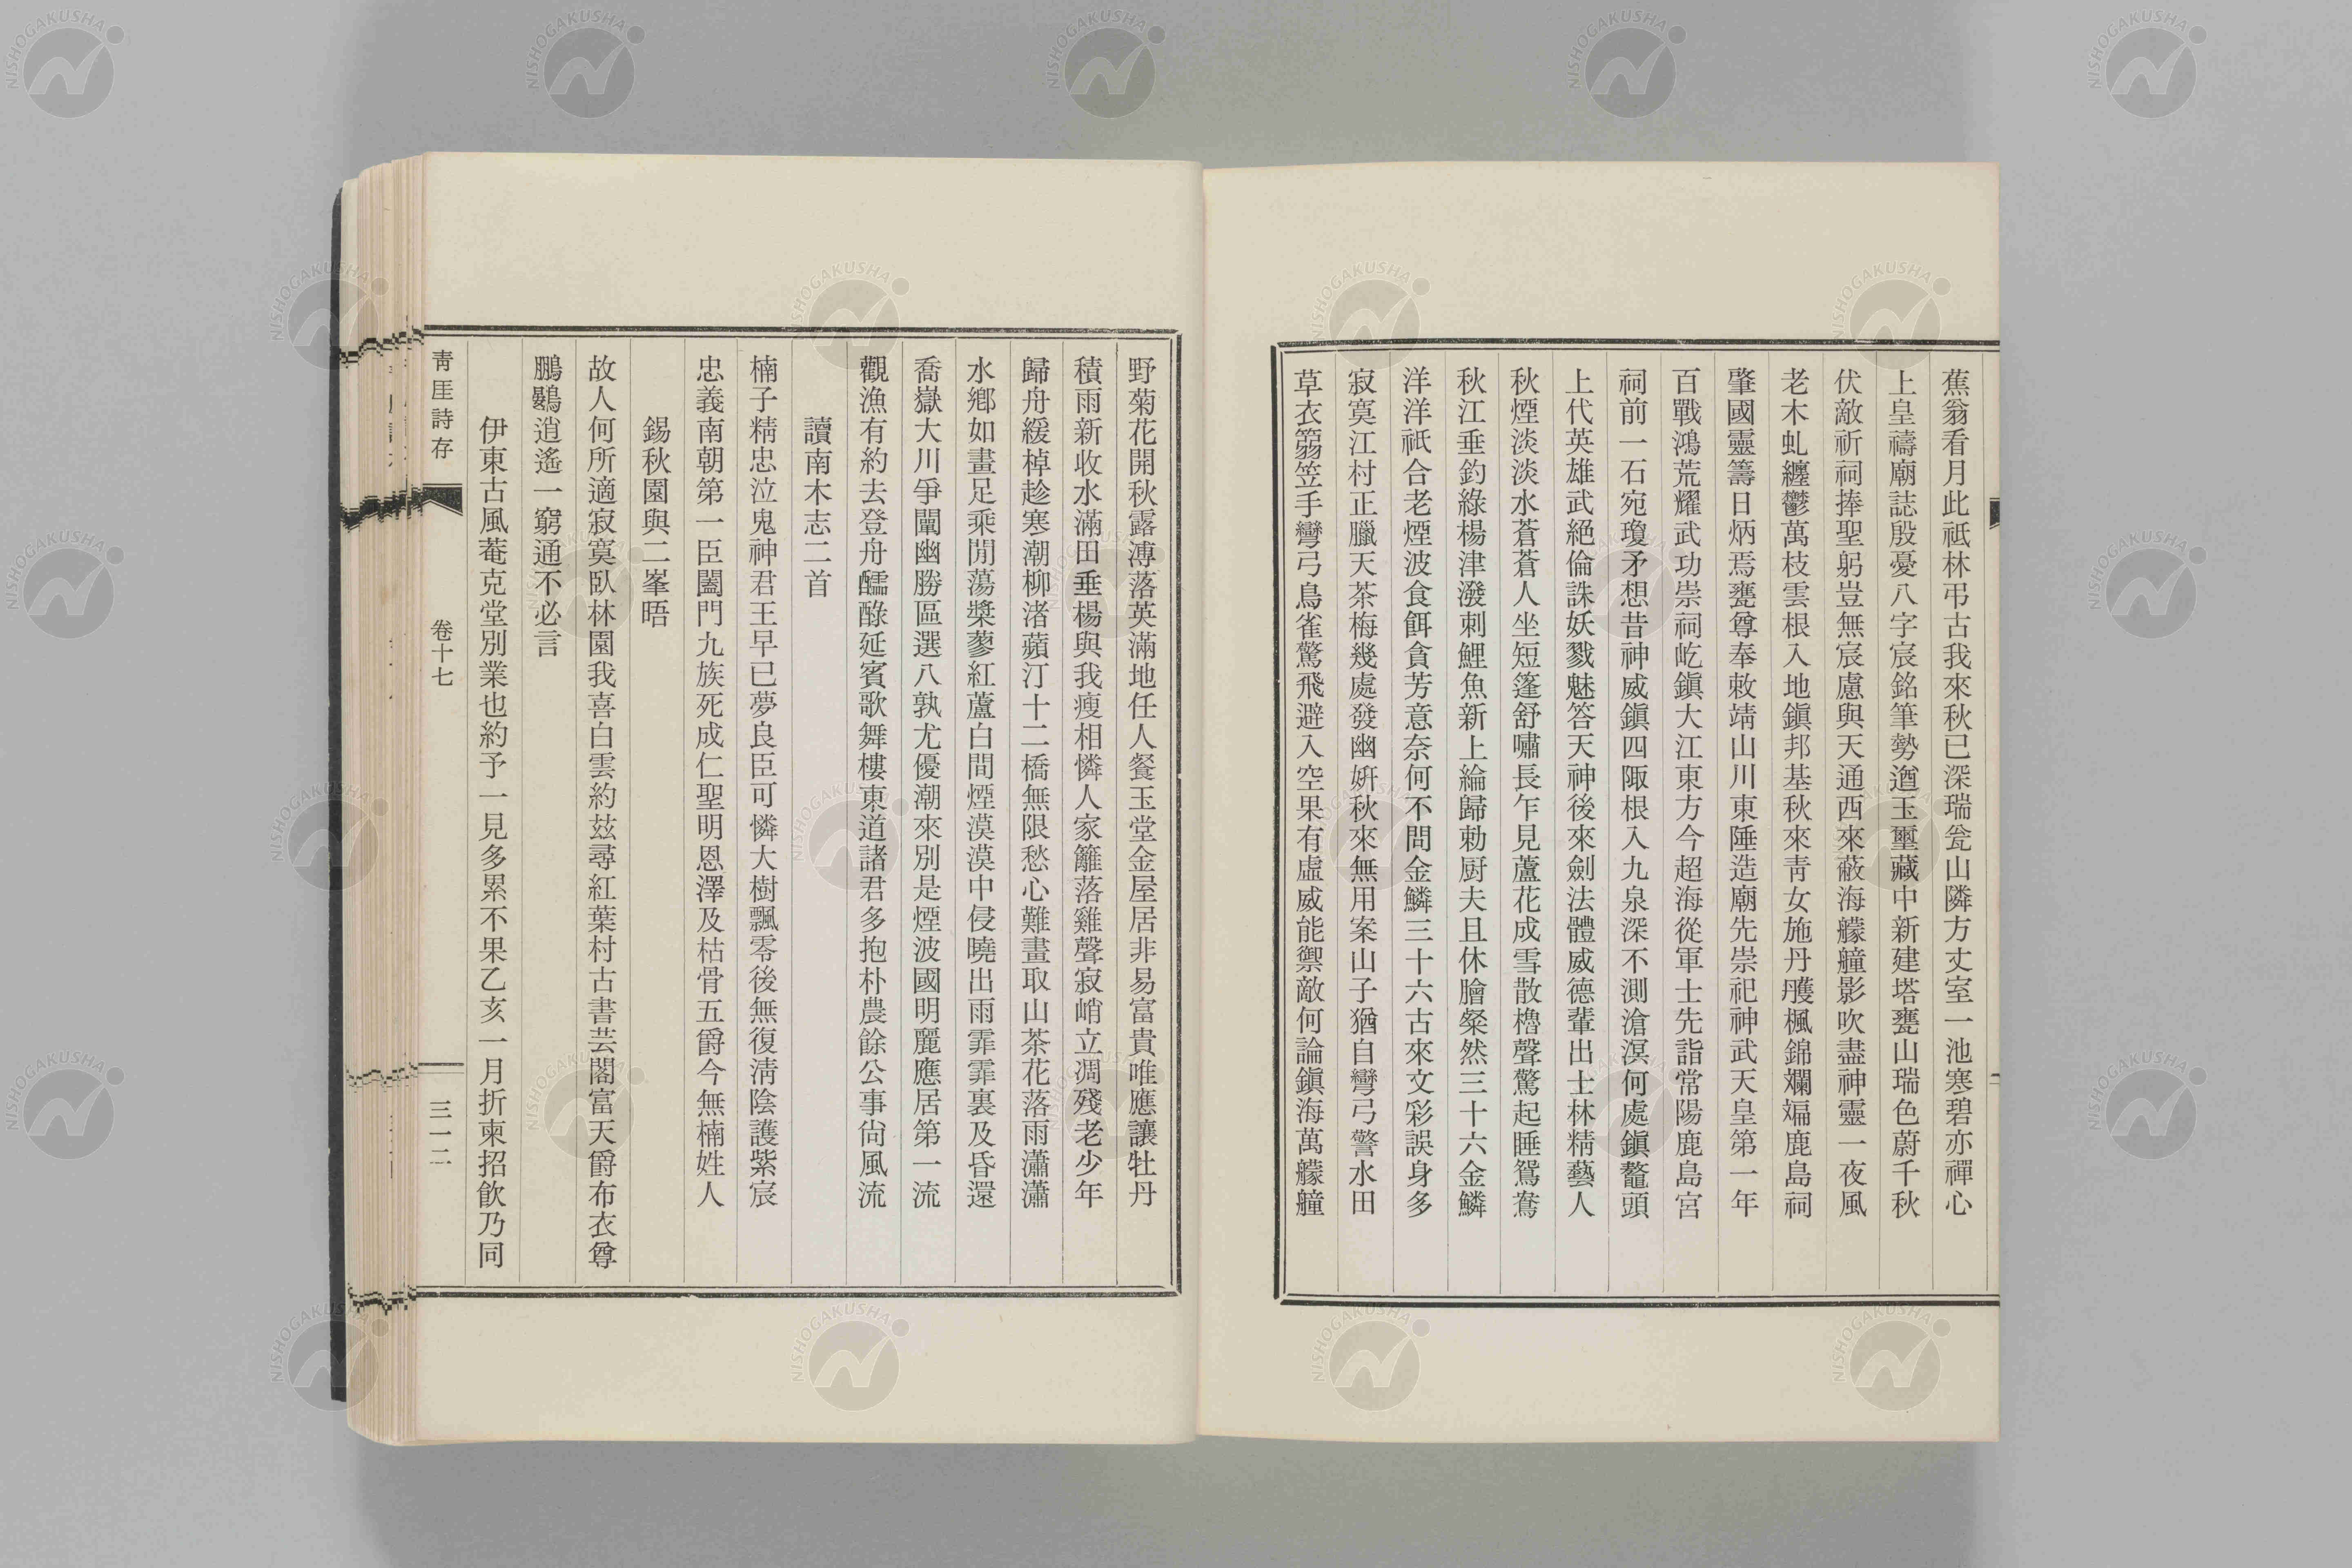 蕉翁看月此祗林弔古我來秋已深瑞瓮山隣方丈室一池寒碧亦禪心
上皇禱廟誌殷憂八字宸銘筆勢遒玉璽藏中新建塔甕山瑞色蔚千秋
伏敵祈祠捧聖躬豈無宸慮與天通西來蔽海艨艟影吹盡神靈一夜風
老木虬纏鬱萬枝雲根入地鎭邦基秋來靑女施丹雘楓錦斕斒鹿島祠
肇國靈籌日炳焉甕尊奉敕靖山川東陲造廟先崇祀神武天皇第一年
百戰鴻荒耀武功崇祠屹鎭大江東方今超海從軍士先詣常陽鹿島宮
祠前一石宛瓊矛想昔神威鎭四陬根入九泉深不測滄溟何處鎭鼇頭
上代英雄武絕倫誅妖戮魅答天神後來劍法體威德輩出士林精藝人
秋煙淡淡水蒼蒼人坐短篷舒嘯長乍見蘆花成雪散櫓聲驚起睡鴛鴦
秋江垂釣綠楊津潑刺鯉魚新上綸歸勅厨夫且休膾粲然三十六金鱗
洋洋祇合老煙波食餌貪芳意奈何不問金鱗三十六古來文彩誤身多
寂寞江村正臘天茶梅幾處發幽妍秋來無用案山子猶自彎弓警水田
草衣篛笠手彎弓鳥雀驚飛避入空果有虛威能禦敵何論鎭海萬艨艟
野菊花開秋露溥落英滿地任人餐玉堂金屋居非易富貴唯應讓牡丹
積雨新收水滿田垂楊與我瘦相憐人家籬落雞聲寂峭立凋殘老少年
歸舟緩棹趁寒潮柳渚蘋汀十二橋無限愁心難畫取山茶花落雨瀟瀟
水鄕如畫足乘閒蕩槳蓼紅蘆白間煙漠漠中侵曉出雨霏霏裏及昏還
喬嶽大川爭闡幽勝區選八孰尤優潮來別是煙波國明麗應居第一流
觀漁有約去登舟醽醁延賓歌舞樓東道諸君多抱朴農餘公事尙風流
讀南木志二首
楠子精忠泣鬼神君王早已夢良臣可憐大樹飄零後無復淸陰護紫宸
忠義南朝第一臣闔門九族死成仁聖明恩澤及枯骨五爵今無楠姓人
錫秋園與二峯晤
故人何所適寂寞臥林園我喜白雲約玆尋紅葉村古書芸閣富天爵布衣尊
鵬鷃逍遙一窮通不必言
伊東古風菴克堂別業也約予一見多累不果乙亥一月折柬招飮乃同
靑厓詩存
卷十七
三一二
NISHOGAKUSHA